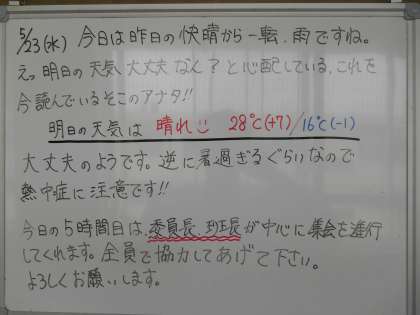 5/23(水) 今日は昨日の快晴から一転、雨ですね。
えっ明日の天気、大丈夫なん?と心配している、これを
今読んでいるそこのアナタ!!
明日の天気は 晴れ 28℃(+7)/16℃(-1)
大丈夫のようです。逆に暑過ぎるぐらいなので
熱中症に注意です!!
今日の5時間目は、委員長、班長が中心に集会を進行
してくれます。全員で協力してあげて下さい。
よろしくお願いします。